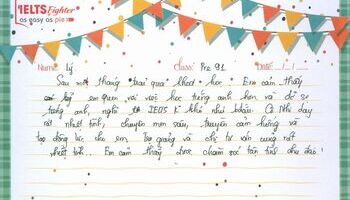 IELTS Fighter
as easy as pie
Name: Lý Class: Pre 91 Date: / /
Sau một tháng trải qua khoá học. Em cảm thấy
em quen với việc học tiếng anh hơn và dễ
tiếng anh, nghĩ IELTS k khó như trước. Cô Nhi dạy
rất nhiệt tình, chuyên môn sâu, truyền cảm hứng và
tạo động lực cho em. Trợ giảng và chị tư vấn cũng rất
nhiệt tình. Em cảm thấy được chăm sóc tận tình chu đáo!